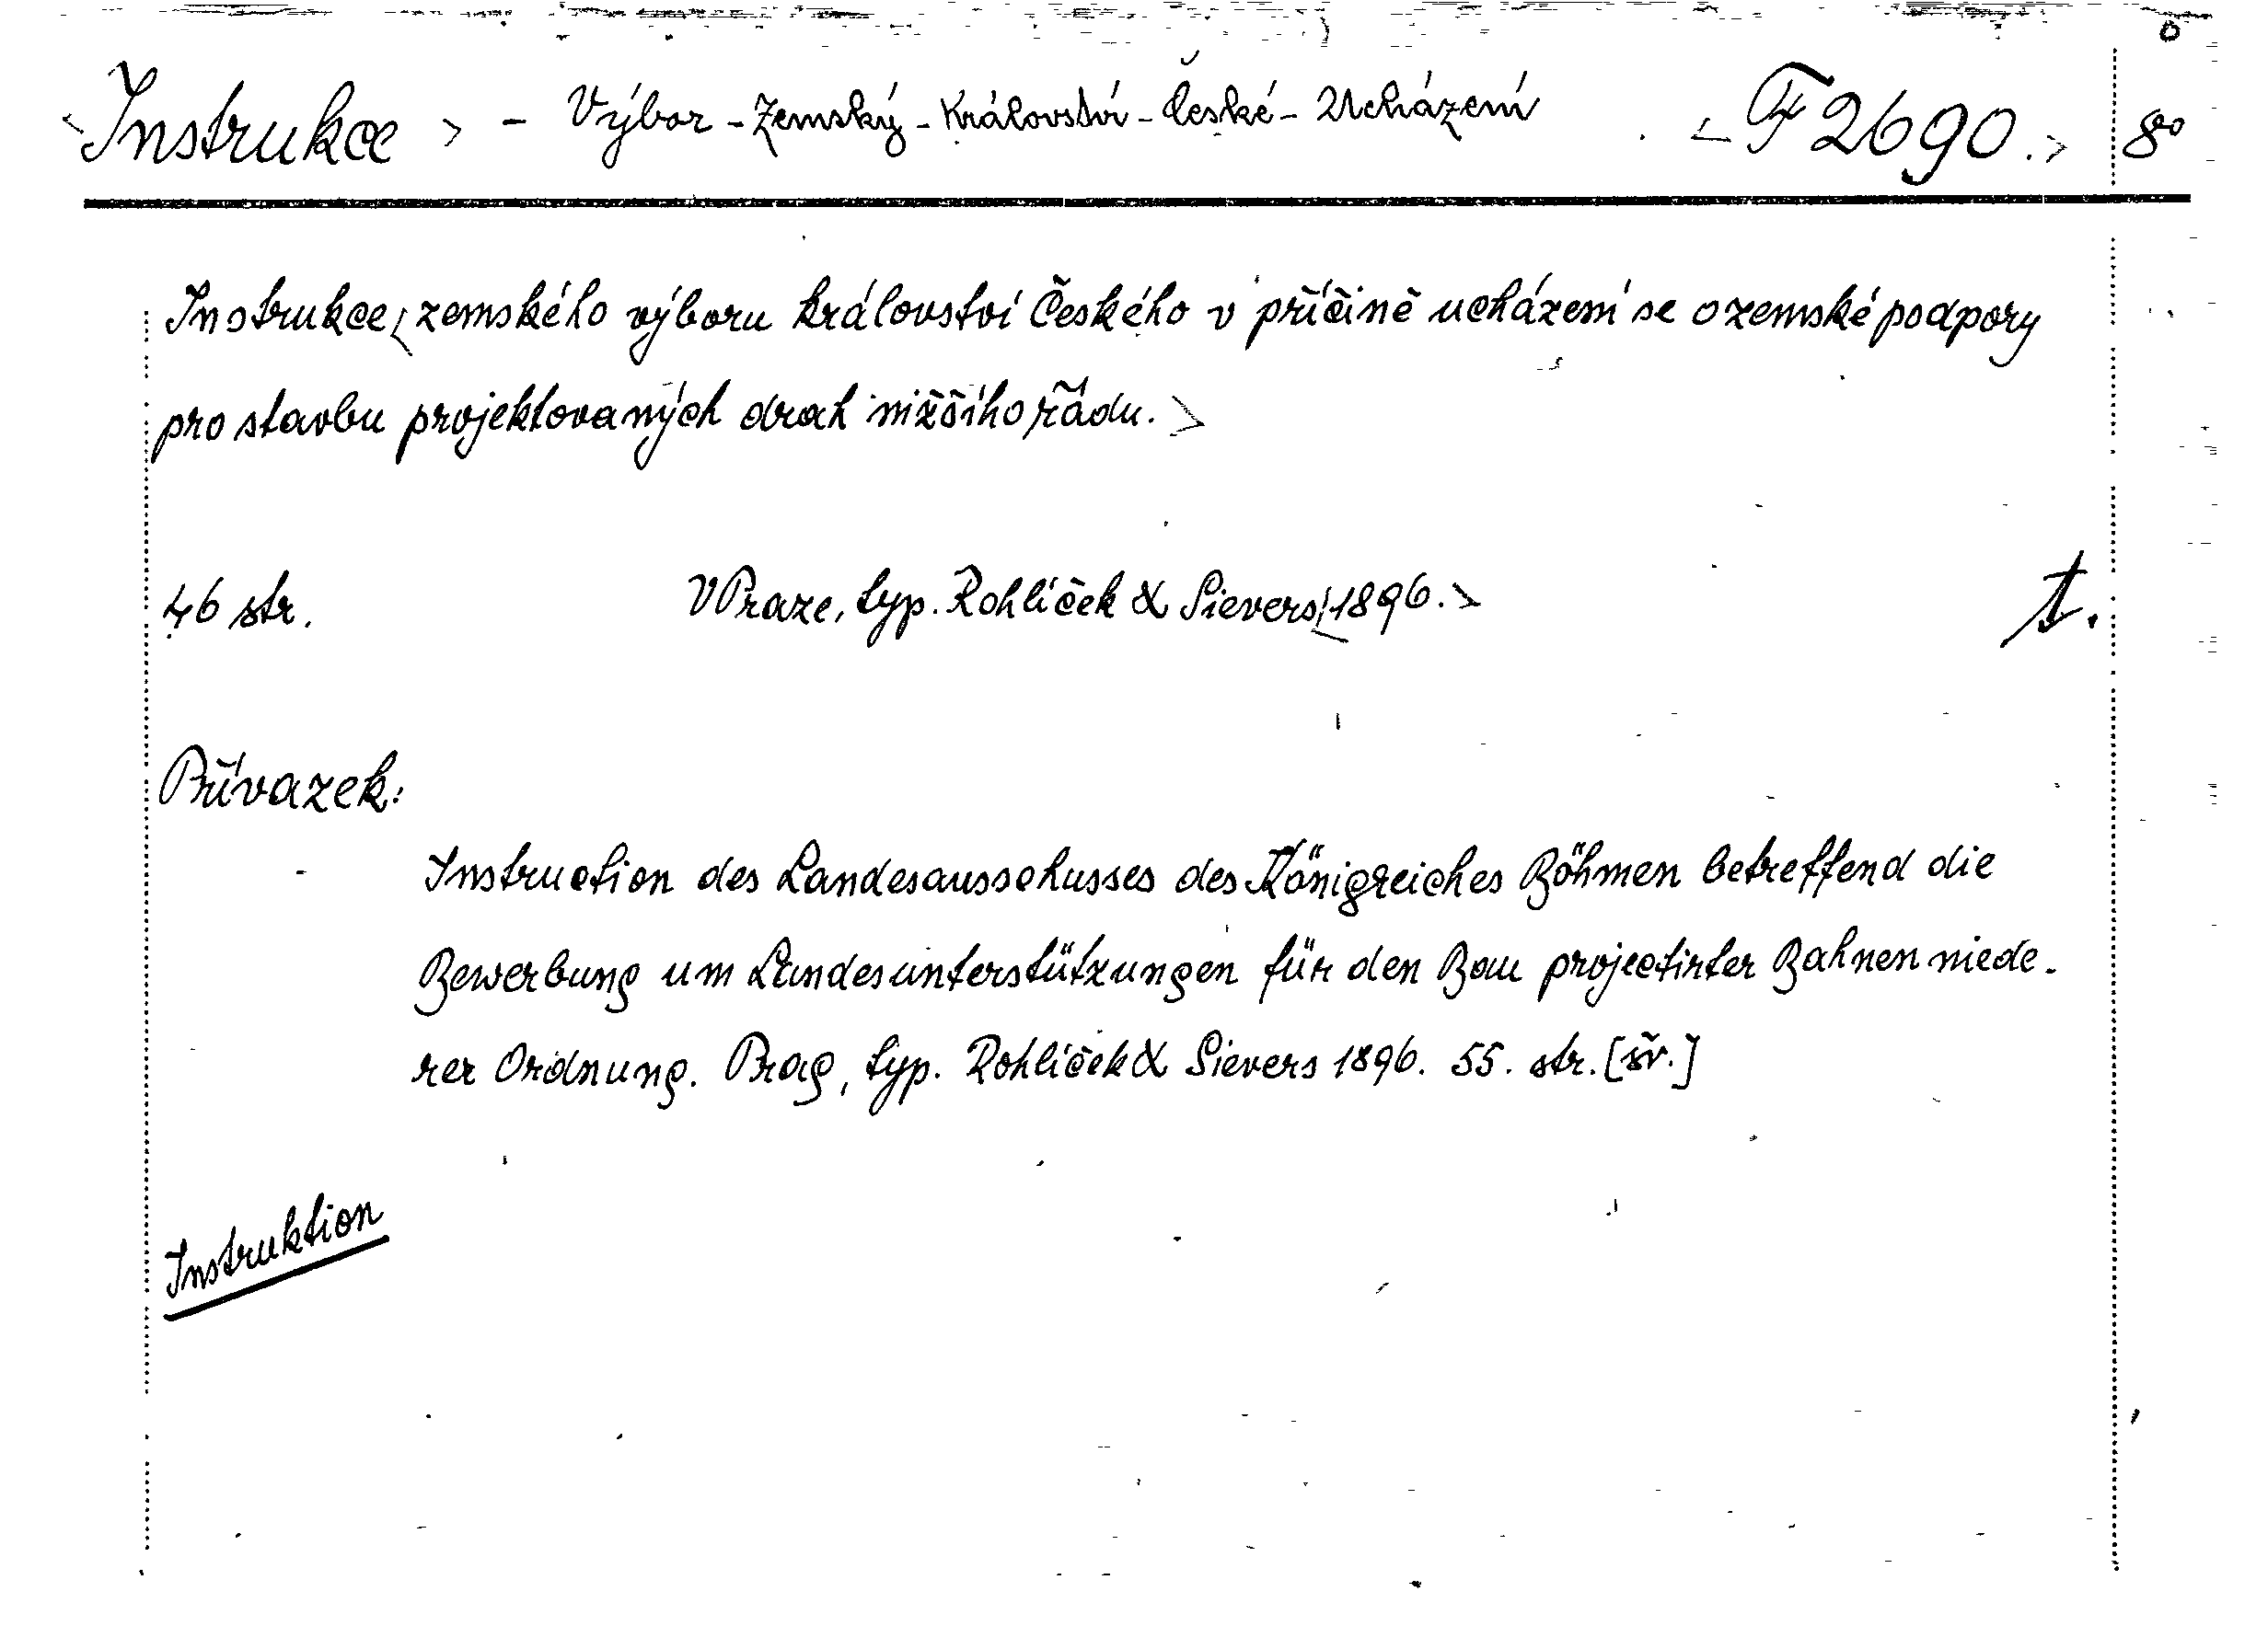 <Instrukce> - Výbor - Zemský - Království - České - Ucházení <F 2690.> 8°
Instrukce <zemského výboru království Českého v příčině ucházení se o zemské podpory
pro stavbu projektovaných drah nižšího řádu.>
46 str. V Praze, typ. Rohlíček & Sievers, <1896.> t.
Přívazek:
Instruction des Landesausschusses des Königreiches Böhmen betreffend die
Bewerbung um Landesunterstützungen für den Bau projectirter Bahnen niede-
rer Ordnung. Prag, typ. Rohlíček & Sievers 1896. 55. str. [šv.]
Instruktion